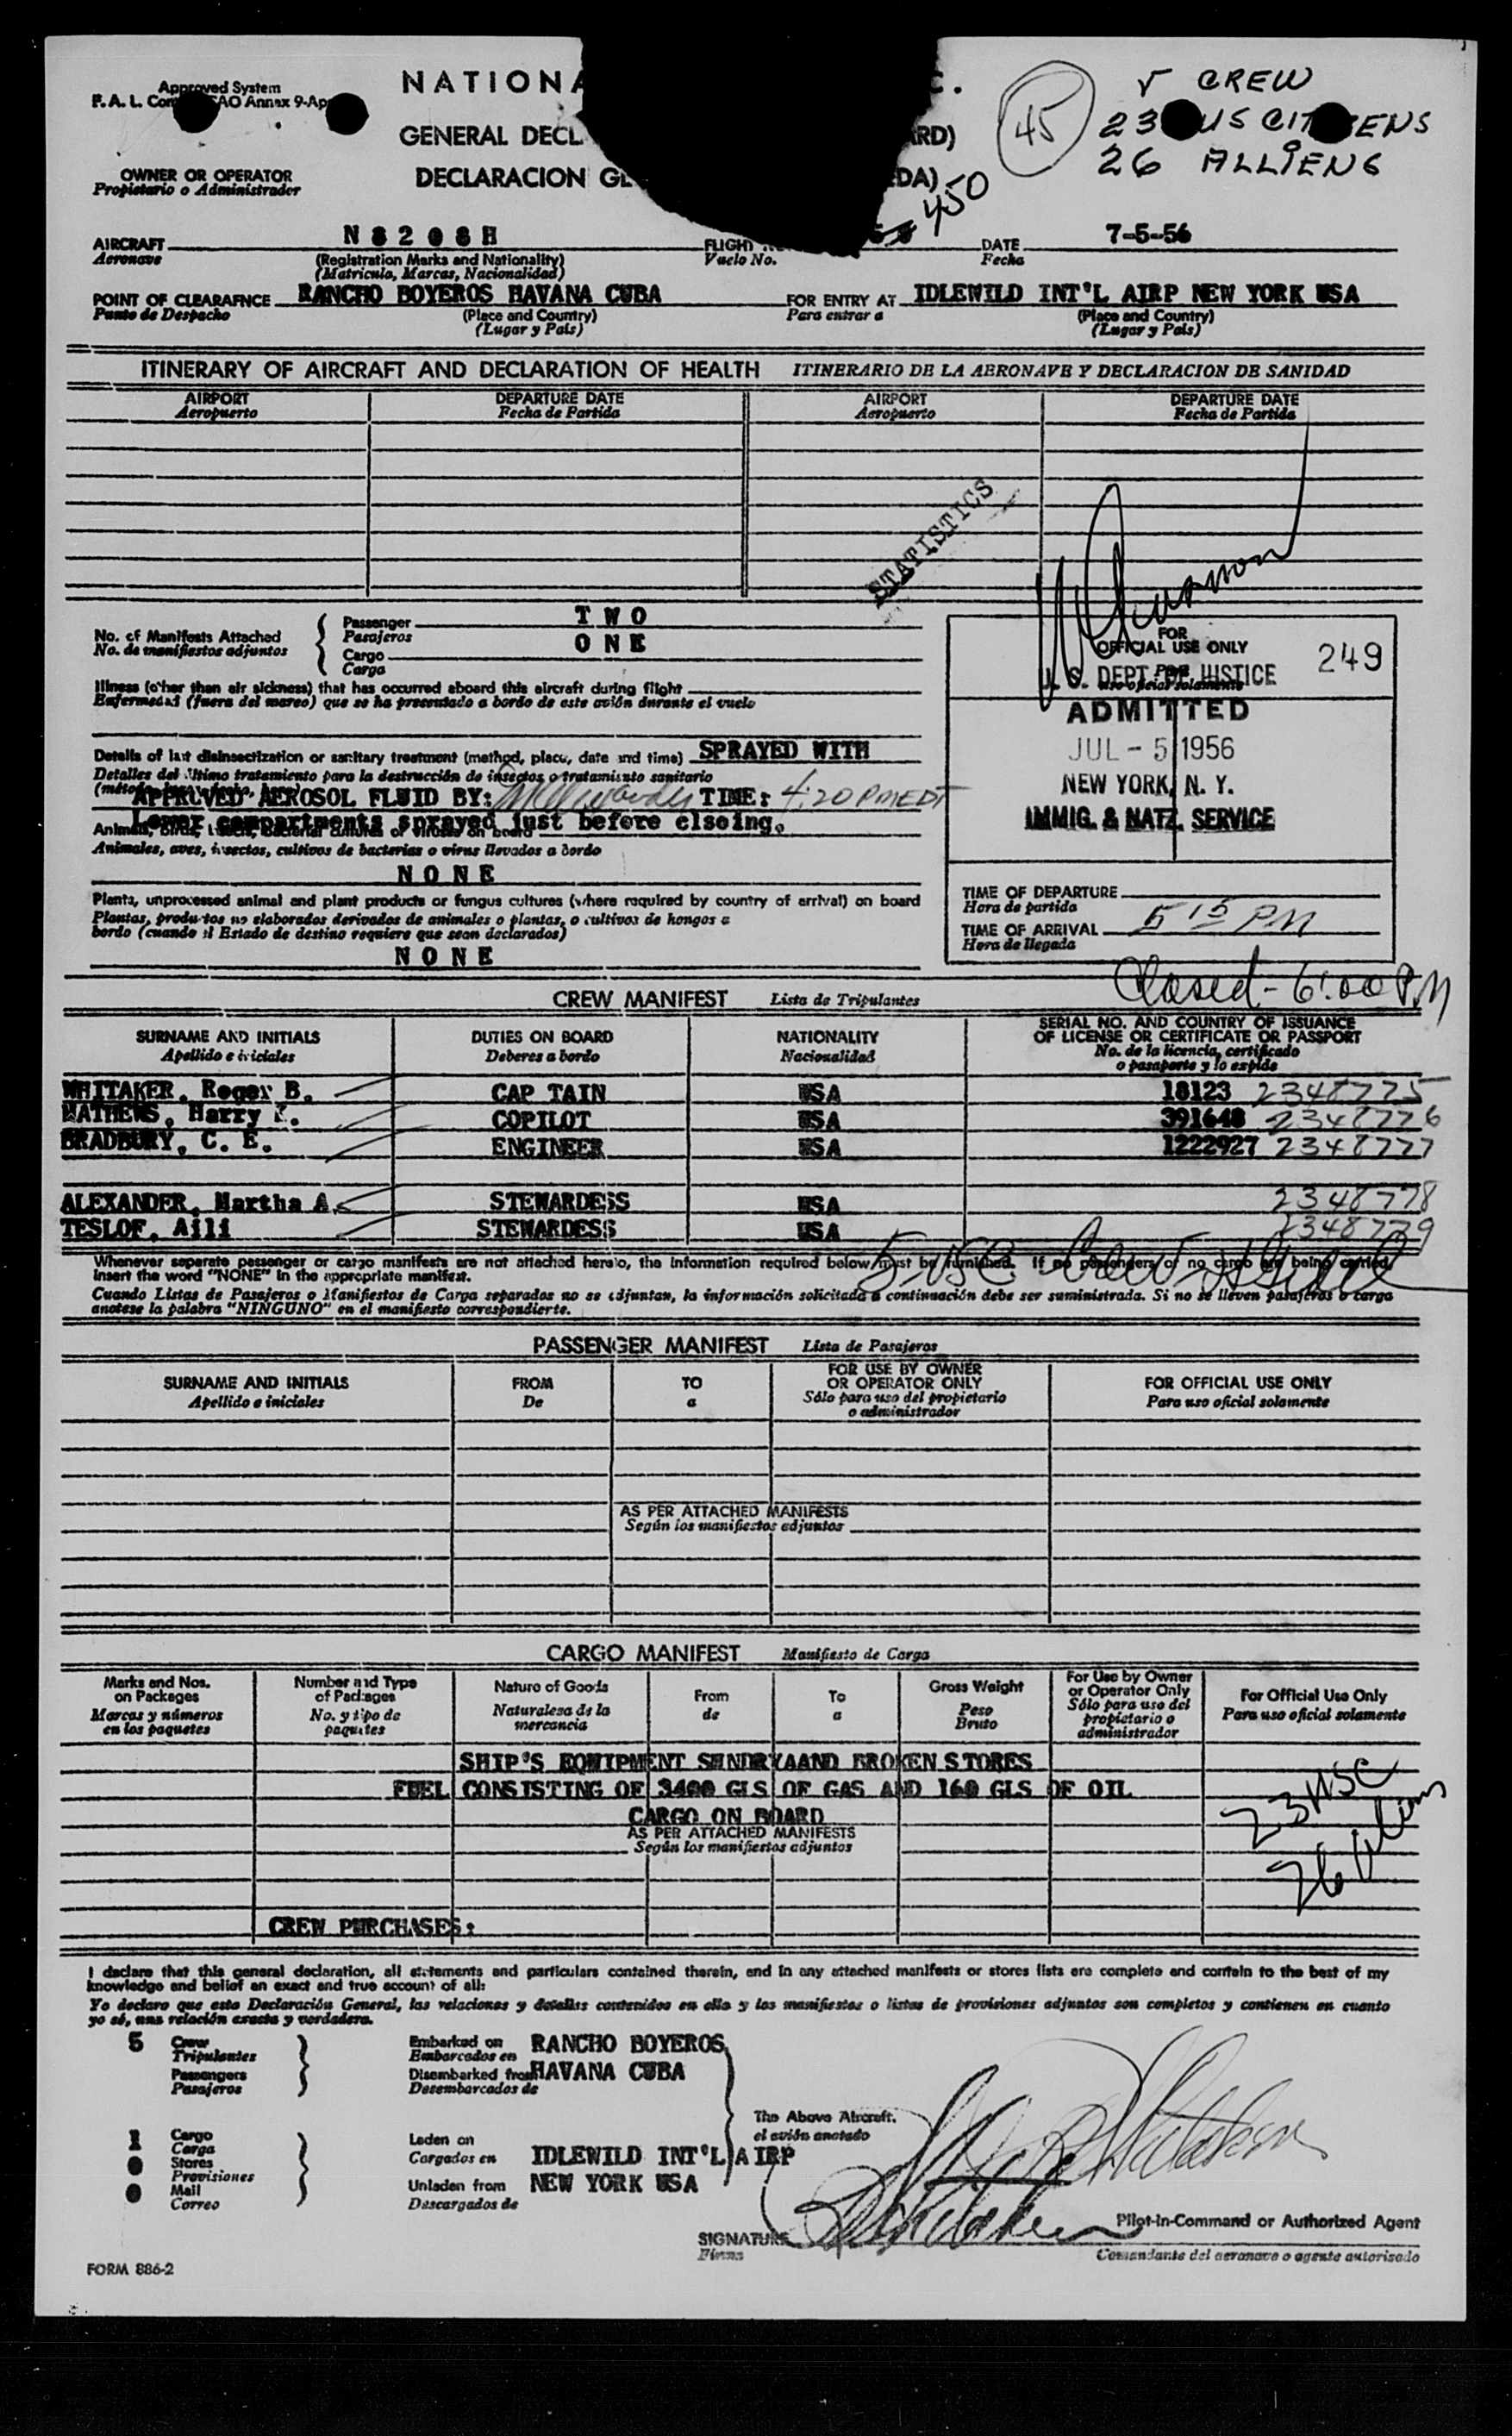 Approved System
F. A. L. Com AO Annex 9-Ap
NATIONA C.
GENERAL DECL RD)
DECLARACION GE DA)
45
CREW
23 US CITIZENS
26 ALLIENS
450
OWNER OR OPERATOR
Propietario o Administrador
AIRCRAFT N 8 2 0 8 H FLIGHT DATE 7-5-56
Aeronave (Registration Marks and Nationality) Vuelo No. Fecha
(Matricula, Marcas, Nacionalidad)
POINT OF CLEARAFNCE RANCHO BOYEROS HAVANA CUBA FOR ENTRY AT IDLEWILD INT'L AIRP NEW YORK USA
Punto de Despacho (Place and Country) Para entrar a (Place and Country)
(Lugar y País) (Lugar y País)
ITINERARY OF AIRCRAFT AND DECLARATION OF HEALTH ITINERARIO DE LA AERONAVE Y DECLARACION DE SANIDAD
AIRPORT DEPARTURE DATE AIRPORT DEPARTURE DATE
Aeropuerto Fecha de Partida Aeropuerto Fecha de Partida
STATISTICS
No. of Manifests Attached Passenger T W O
No. de manifiestos adjuntos Pasajeros
Cargo O N E
Carga
FOR
OFFICIAL USE ONLY 249
U. S. DEPT. OF JUSTICE
Para uso oficial solamente
ADMITTED
JUL - 5 1956
NEW YORK, N. Y.
IMMIG. & NATZ. SERVICE
Illness (other than air sickness) that has occurred aboard this aircraft during flight
Enfermedad (fuera del mareo) que se ha presentado a bordo de este avión durante el vuelo
Details of last disinsectization or sanitary treatment (method, place, date and time) SPRAYED WITH
Detalles del último tratamiento para la destrucción de insectos o tratamiento sanitario
APPROVED AEROSOL FLUID BY: TIME: 4:20 PM EDT
Lower compartments sprayed just before clseing.
Animales, aves, insectos, cultivos de bacterias o virus llevados a bordo
N O N E
Plants, unprocessed animal and plant products or fungus cultures (where required by country of arrival) on board
Plantas, productos no elaborados derivados de animales o plantas, o cultivos de hongos a
bordo (cuando el Estado de destino requiere que sean declarados)
N O N E
TIME OF DEPARTURE
Hora de partida
TIME OF ARRIVAL 5 15 PM
Hora de llegada
Closed - 6:00 P.M
CREW MANIFEST Lista de Tripulantes
SURNAME AND INITIALS DUTIES ON BOARD NATIONALITY SERIAL NO. AND COUNTRY OF ISSUANCE
OF LICENSE OR CERTIFICATE OR PASSPORT
Apellido e iniciales Deberes a bordo Nacionalidad No. de la licencia, certificado
o pasaporte y lo expide
WHITTAKER, Roger B. CAP TAIN USA 18123 2348775
MATHEWS, Harry COPILOT USA 391648 2348776
BRADBURY, C. E. ENGINEER USA 1222927 2348777
ALEXANDER, Martha A. STEWARDESS USA 2348778
TESLOF, Aili STEWARDESS USA 2348779
5 USC Crew
Whenever separate passenger or cargo manifests are not attached hereto, the information required below must be furnished. If no passengers or no cargo are being carried,
insert the word "NONE" in the appropriate manifest.
Cuando Listas de Pasajeros o Manifiestos de Carga separados no se adjuntan, la información solicitada a continuación debe ser suministrada. Si no se lleven pasajeros o carga
anotese la palabra "NINGUNO" en el manifiesto correspondierte.
PASSENGER MANIFEST Lista de Pasajeros
SURNAME AND INITIALS FROM TO FOR USE BY OWNER
OR OPERATOR ONLY FOR OFFICIAL USE ONLY
Apellido e iniciales De a Sólo para uso del propietario
o administrador Para uso oficial solamente
AS PER ATTACHED MANIFESTS
Según los manifiestos adjuntos
CARGO MANIFEST Manifiesto de Carga
Marks and Nos. on Packages Number and Type of Packages Nature of Goods From To Gross Weight For Use by Owner or Operator Only For Official Use Only
Marcas y números en los paquetes No. y tipo de paquetes Naturaleza de la mercancia de a Peso Bruto Sólo para uso del propietario o administrador Para uso oficial solamente
SHIP'S EQUIPMENT SUNDRYAAND BROKEN STORES
FUEL CONSISTING OF 3400 GLS OF GAS AND 160 GLS OF OIL
CARGO ON BOARD
AS PER ATTACHED MANIFESTS
Según los manifiestos adjuntos
23 USC
26 Aliens
CREW PURCHASES:
I declare that this general declaration, all statements and particulars contained therein, and in any attached manifests or stores lists are complete and contain to the best of my
knowledge and belief an exact and true account of all:
Yo declaro que esta Declaración General, las relaciones y detalles contenidos en ella y los manifiestos o listas de provisiones adjuntos son completos y contienen en cuanto
yo sé, una relación exacta y verdadera.
5 Crew Embarked on RANCHO BOYEROS
Tripulantes Embarcados en
Passengers Disembarked from HAVANA CUBA
Pasajeros Desembarcados de
The Above Aircraft.
el avión anotado
1 Cargo Laden on
Carga Cargados en IDLEWILD INT'L AIRP
0 Stores
Provisiones
0 Mail Unladen from NEW YORK USA
Correo Descargados de
SIGNATURE Pilot-in-Command or Authorized Agent
Firma Comandante del aeronave o agente autorizado
FORM 886-2